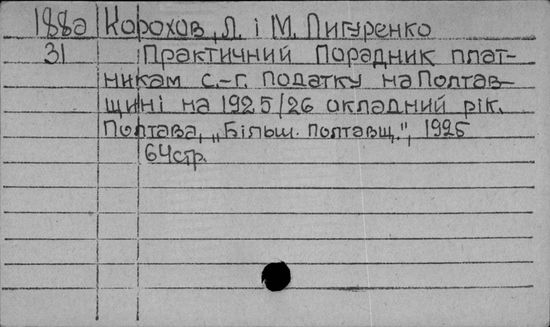 188a Корохов, Л. і М. Пигуренко
31 Практичний Порадник плат-
никам с.-г. податку на Полтав-
щині на 1925/26 окладний рік.
Полтава, „Більш. Полтавщ.", 1925
64стр.